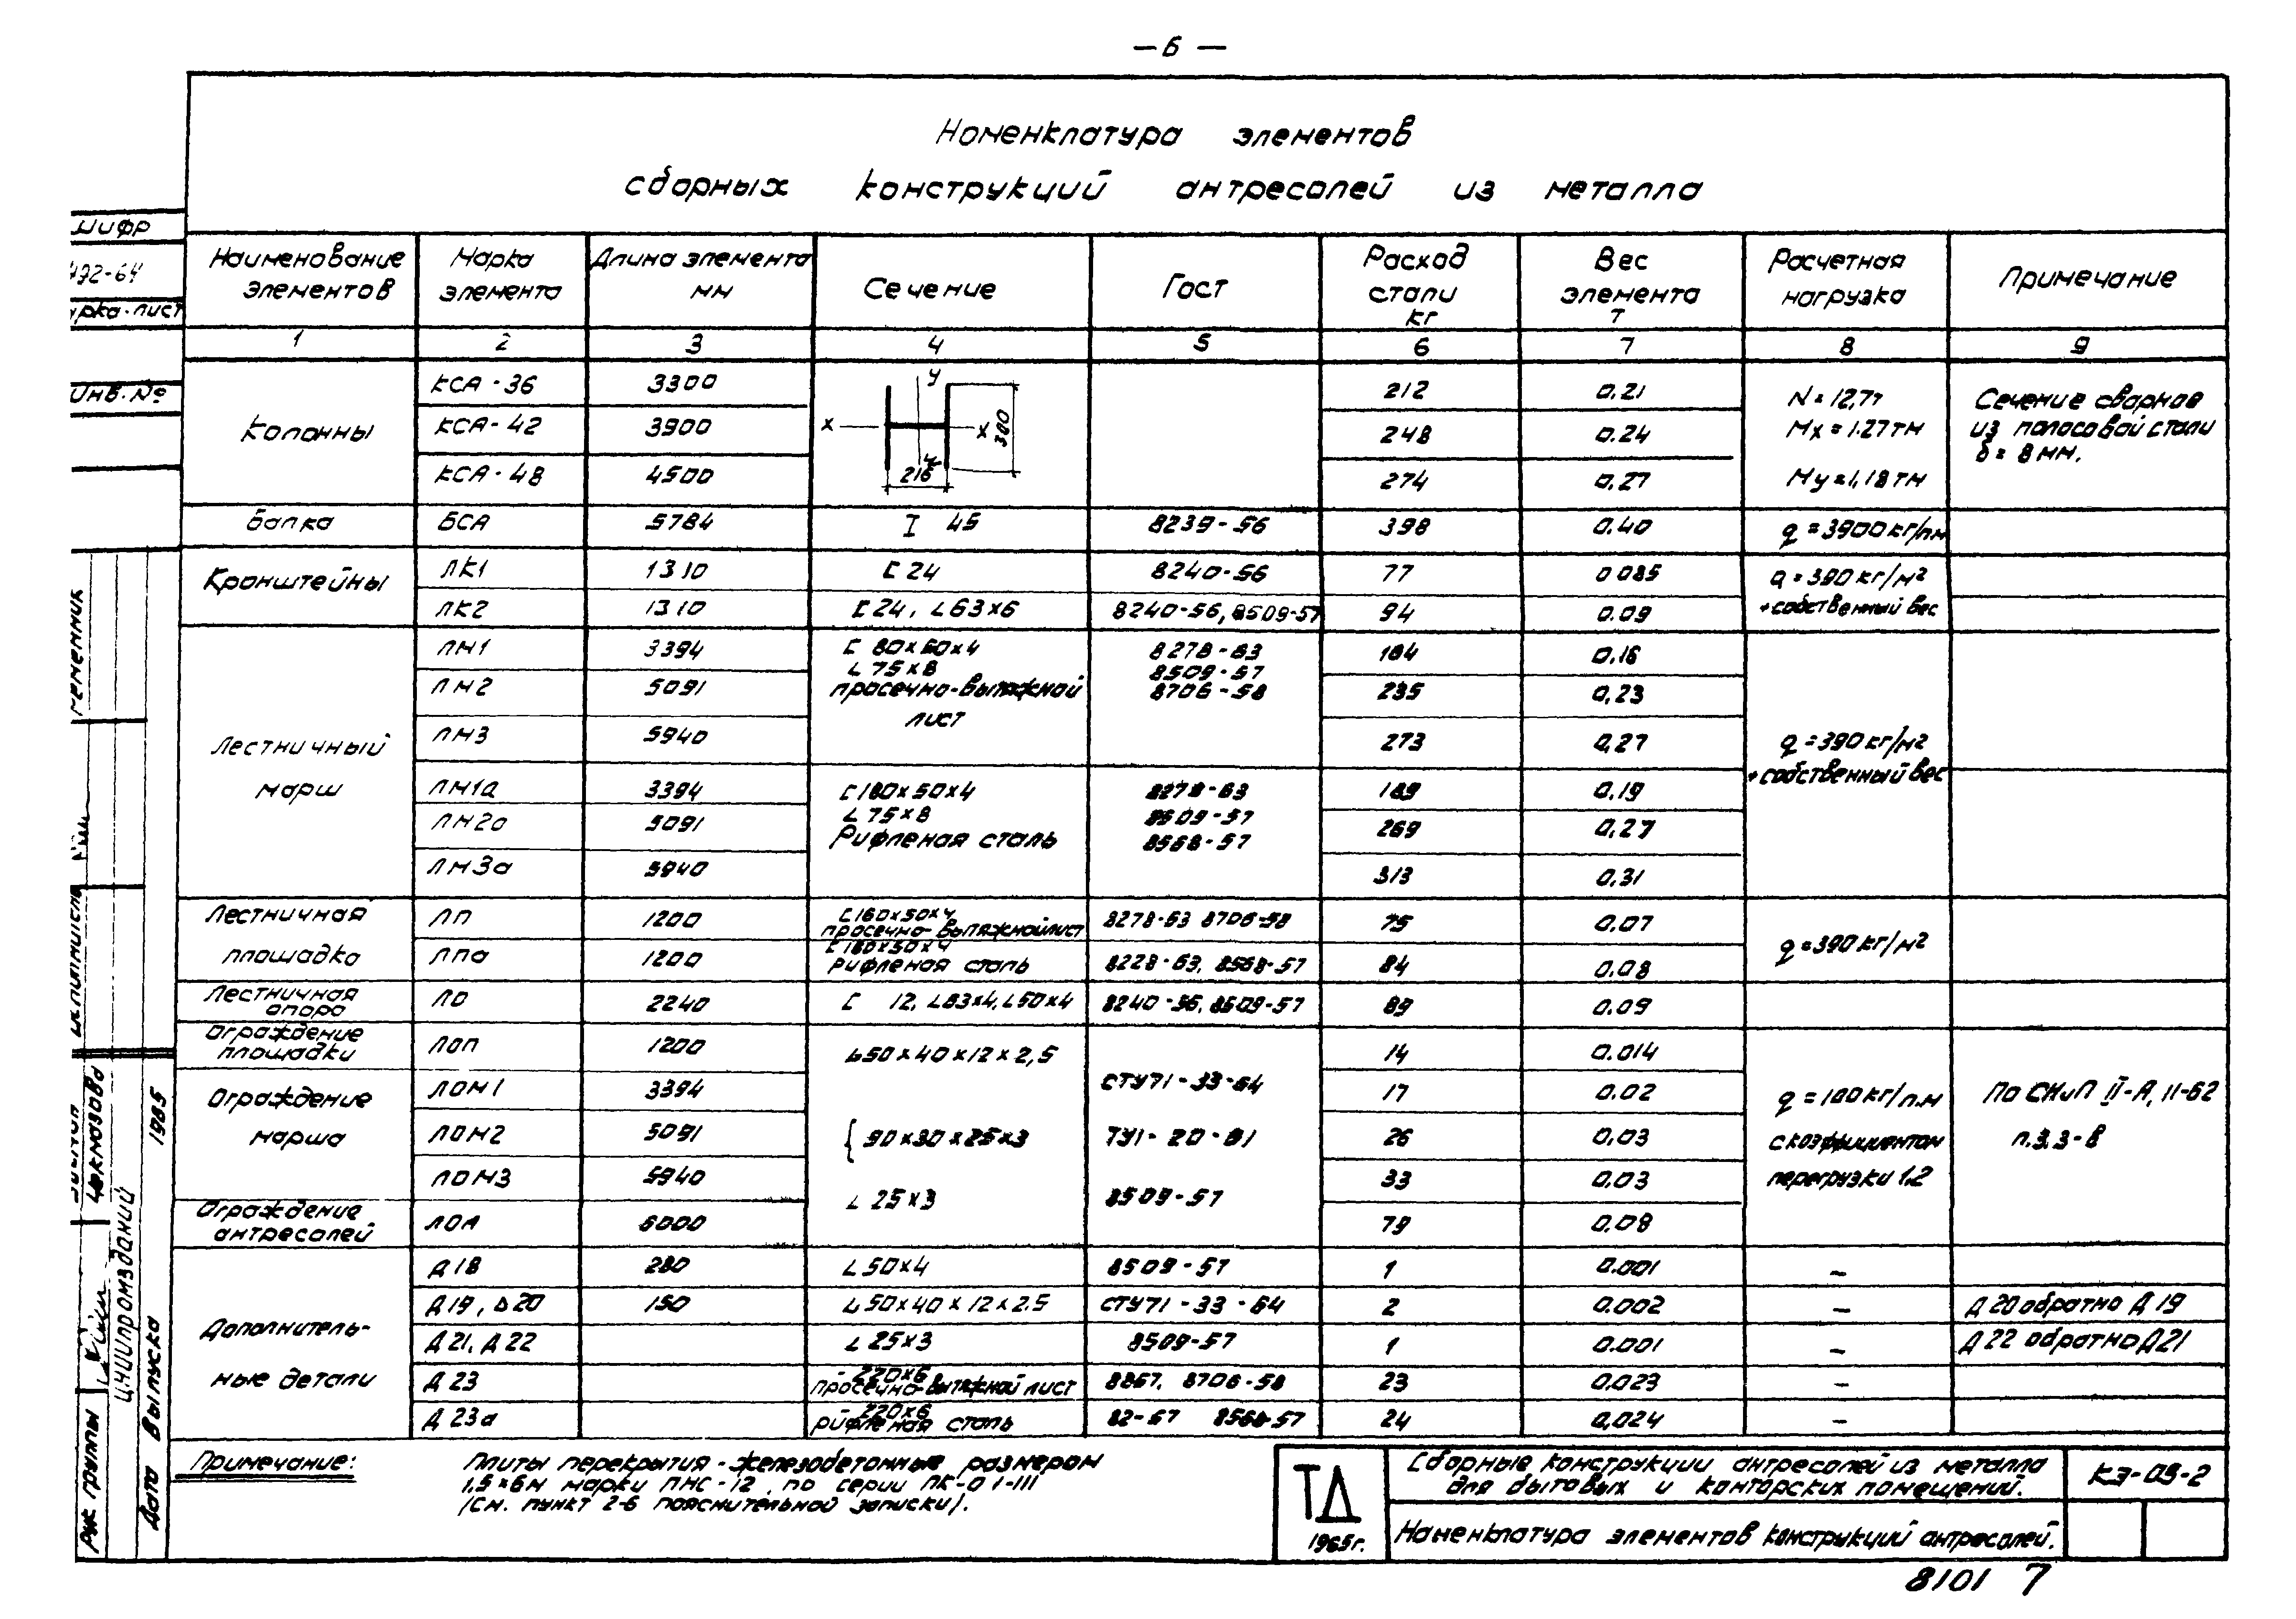 — 6 —
Номенклатура элементов
сборных конструкций антресолей из металла
Наименование элементов | Марка элемента | Длина элемента мм | Сечение | Гост | Расход стали кг | Вес элемента т | Расчетная нагрузка | Примечание
1 2 3 4 5 6 7 8 9
Колонны
КСА-36 3300 212 0.21
КСА-42 3900 248 0.24
КСА-48 4500 274 0.27
у х х 300 216
N = 12,7т
Мх = 1.27тм
Му = 1,18тм
Сечение сварное
из полосовой стали
δ = 8мм.
Балка БСА 5784 I 45 8239-56 398 0.40 q = 3900 кг/пм
Кронштейны
ЛК1 1310 [ 24 8240-56 77 0 085 q = 390 кг/м²
ЛК2 1310 [ 24, L 63×6 8240-56, 8509-57 94 0.09 + собственный вес
Лестничный
марш
ЛМ1 3394 184 0.16
ЛМ2 5091 235 0,23
ЛМ3 5940 273 0,27
L 75×8
просечно-вытяжной
лист
8278-63
8509-57
8706-58
q = 390 кг/м²
+ собственный вес
ЛМ1а 3394 189 0.19
ЛМ2а 5091 269 0,27
ЛМ3а 5940 313 0,31
L 75×8
Рифленая сталь
8278-63
8509-57
8568-57
Лестничная
площадка
ЛП 1200 [ 160×50×4 просечно-вытяжной лист 8278-63 8706-58 75 0.07
ЛПа 1200 [ 160×50×4 рифленая сталь 8228-63, 8568-57 84 0.08
q = 390 кг/м²
Лестничная опора ЛО 2240 [ 12, L63×4, L50×4 8240-56, 8509-57 89 0.09
Ограждение площадки ЛОП 1200 14 0.014
Ограждение
марша
ЛОМ1 3394 17 0.02
ЛОМ2 5091 26 0.03
ЛОМ3 5940 33 0.03
Ограждение антресолей ЛОА 6000 79 0.08
50×40×12×2,5
СТУ71-33-64
90×30×25×3
ТУ1-20-61
L 25×3
8509-57
q = 100 кг/п.м
с коэффициентом
перегрузки 1.2
По СНиП II-А, 11-62
п.3.3-в
Дополнитель-
ные детали
Д18 280 L 50×4 8509-57 1 0.001 —
Д19, Д20 150 50×40×12×2.5 СТУ71-33-64 2 0.002 — Д 20 обратно Д 19
Д 21, Д 22 L 25×3 8509-57 1 0.001 — Д 22 обратно Д21
Д 23 - 220×6 просечно-вытяжной лист 8706-58 23 0.023 —
Д 23а - 220×6 рифленая сталь 82-57 8568-57 24 0,024 —
Примечание:
Плиты перекрытия - железобетонные размером
1,5×6м марки ПНС-12, по серии ПК-01-111
/см. пункт 2-6 пояснительной записки/.
ТД
1965г.
Сборные конструкции антресолей из металла
для бытовых и конторских помещений.
КЭ-05-2
Номенклатура элементов конструкций антресолей.
8101 7
Шифр
492-64
Марка-лист
Инв. №
Рук группы
ЦНИИпромзданий
Дата выпуска 1965